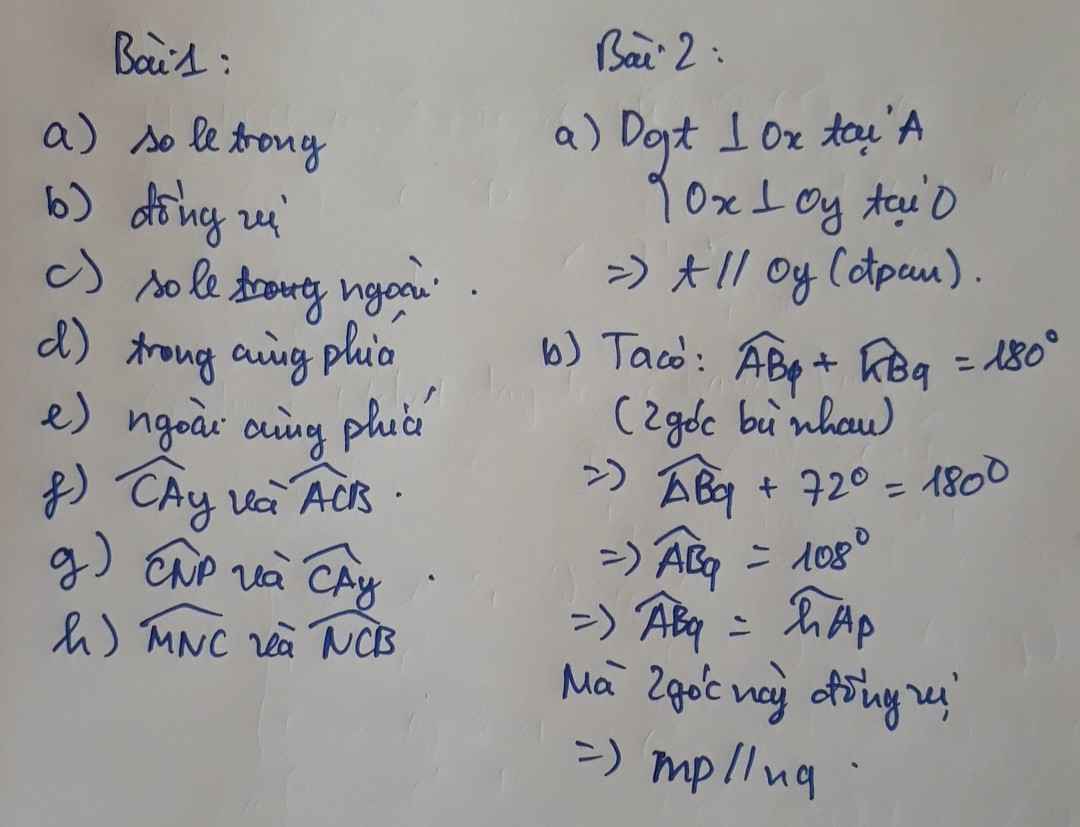 Bài 1 :
a) so le trong
b) đồng vị
c) so le trong ngoài .
d) trong cùng phía
e) ngoài cùng phía
f) CAy và ACB .
g) CNP và CAy .
h) MNC và NCB
Bài 2 :
a) Do { t ⊥ Ox tại A
{ Ox ⊥ Oy tại O
=> t // Oy (đpcm) .
b) Ta có : ABq + kBq = 180°
(2 góc bù nhau)
=> ABq + 72° = 180°
=> ABq = 108°
=> ABq = hAp
Mà 2 góc này đồng vị
=> mp // nq .